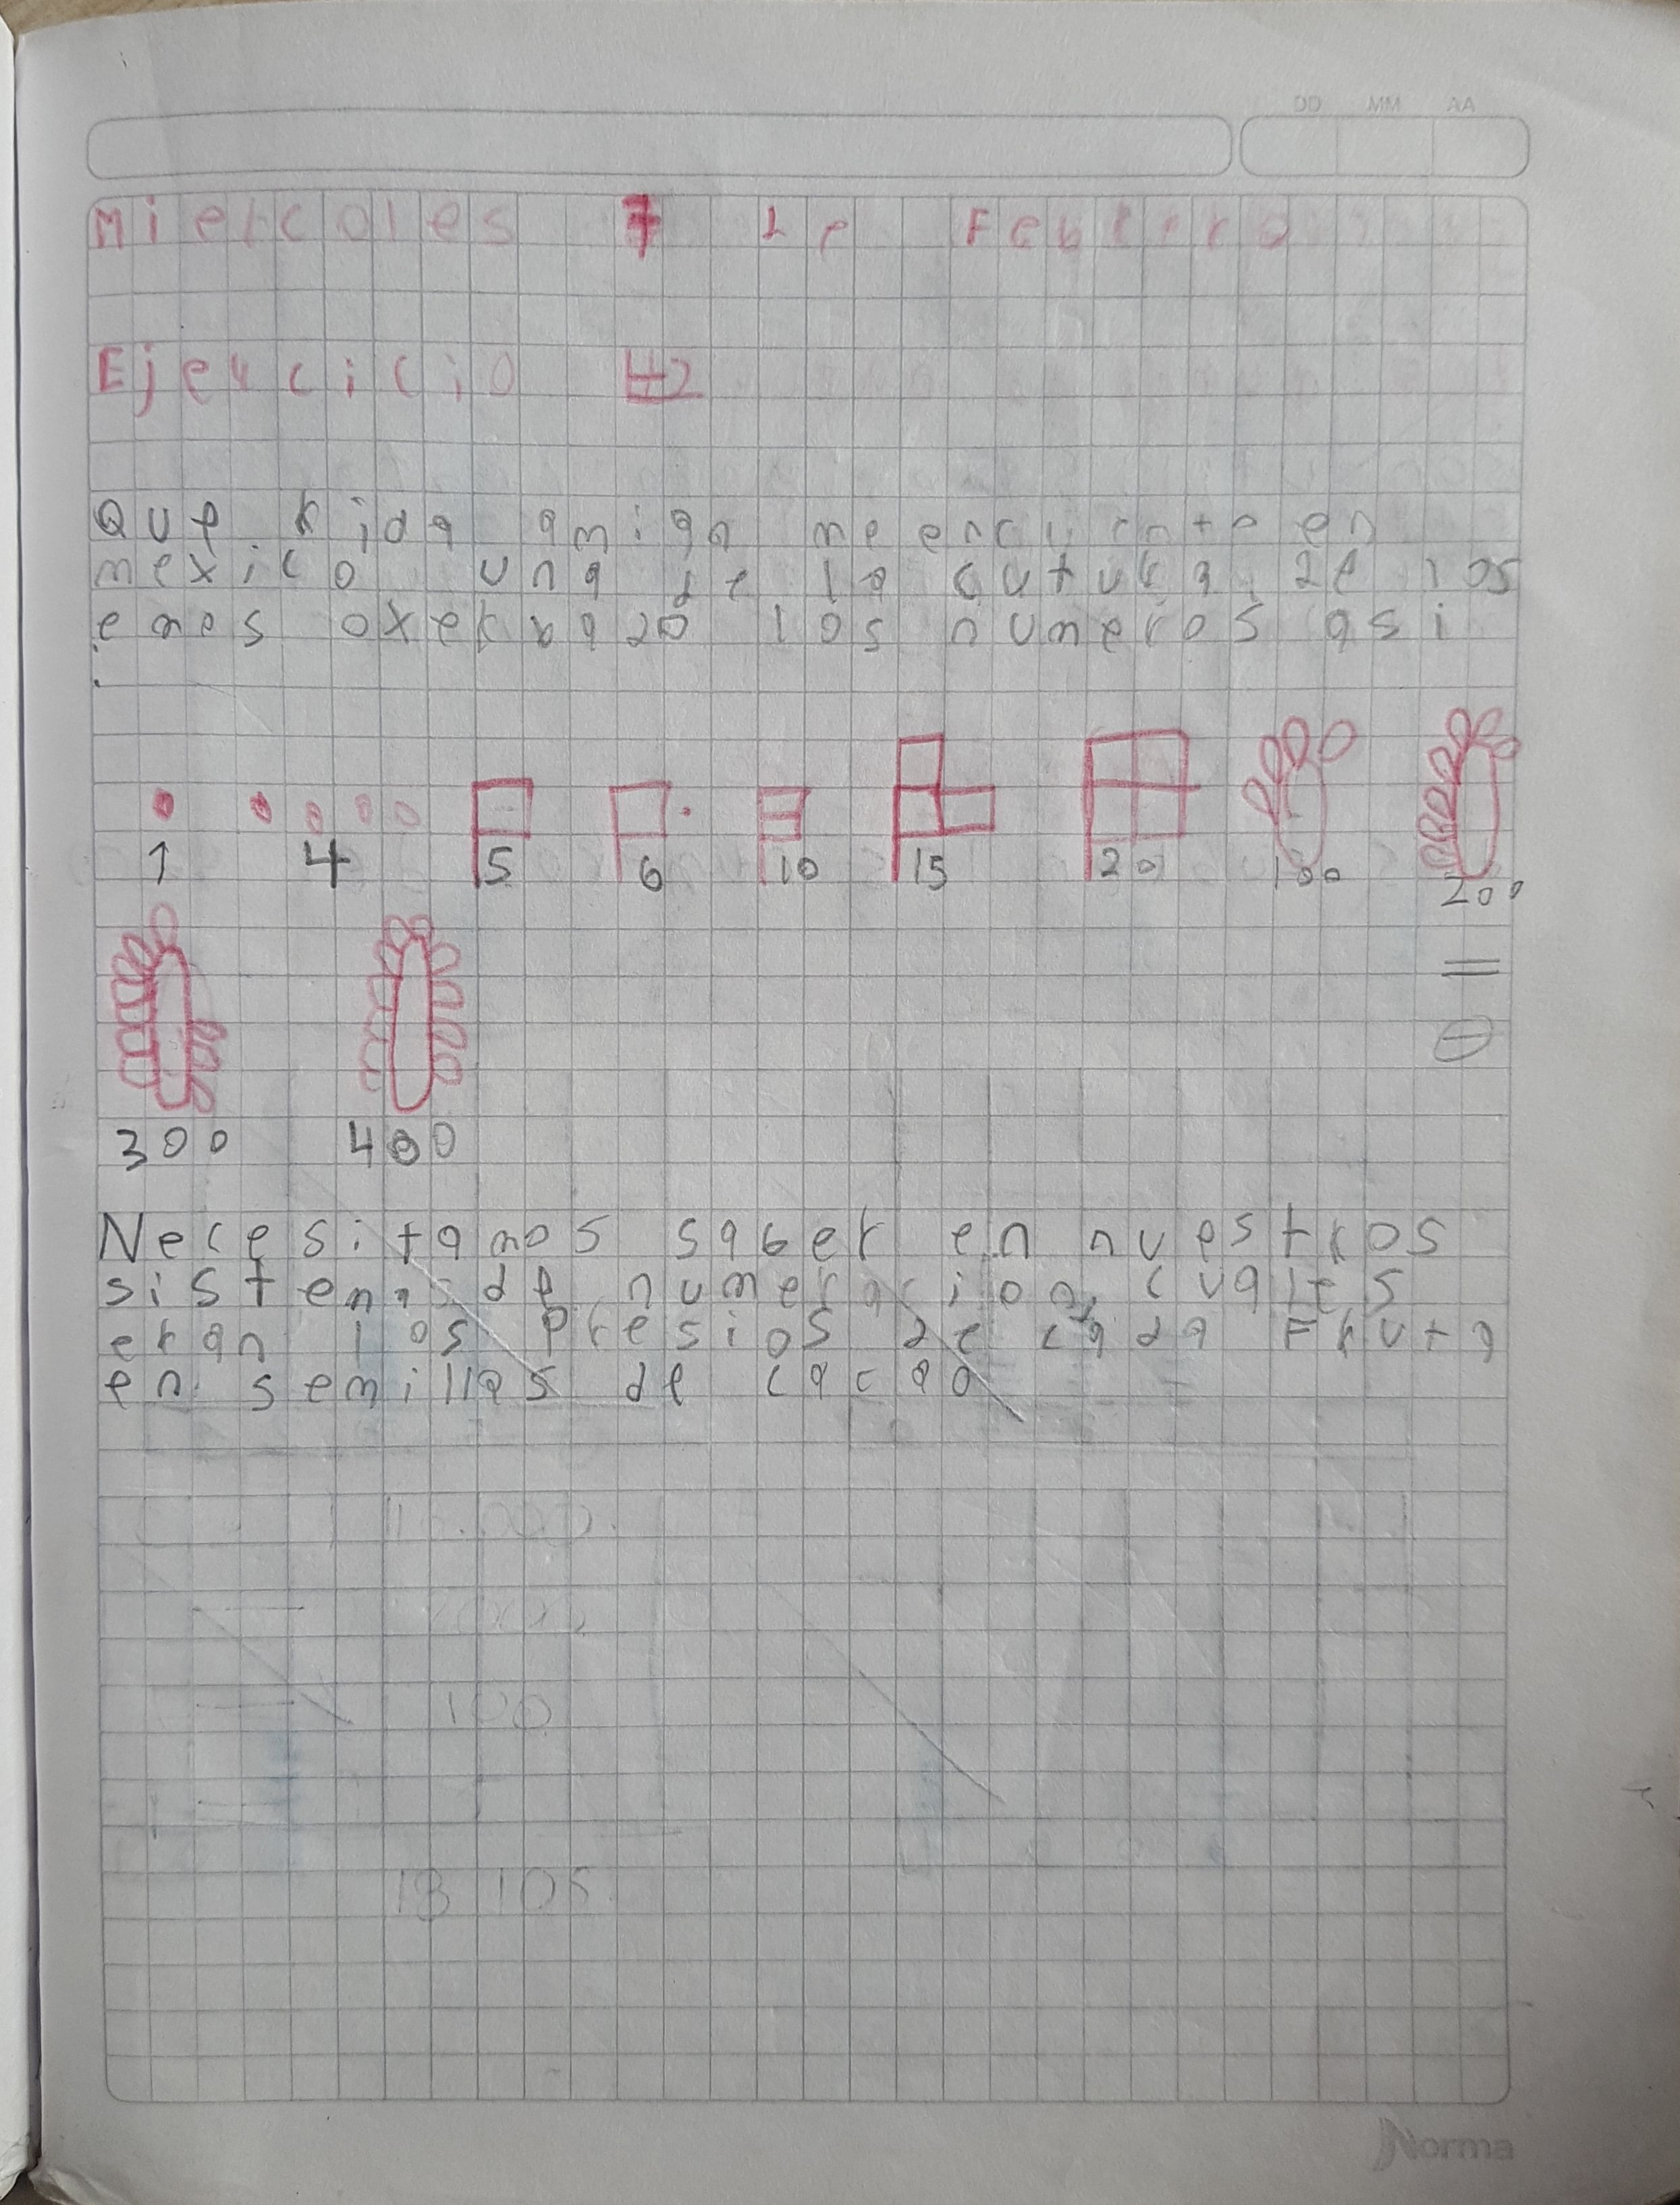 DD MM AA
Miercoles 7 de Febrero
Ejercicio #2
Que rida amiga me encuentro en
mexico una de la cutura de los
emos oxerbado los numeros asi
:
1 4 5 6 10 15 20 100 200
=
300 400
Necesitamos saber en nuestros
sistema de numeracion, cuales
eran los Presios de cada Fruta
en semillas de cacao
16.000
100
18 105
Norma